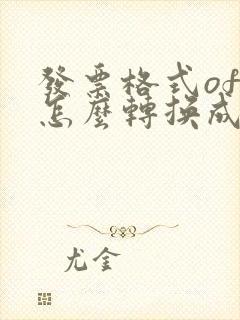 發票格式of
怎麼轉換成
尤金